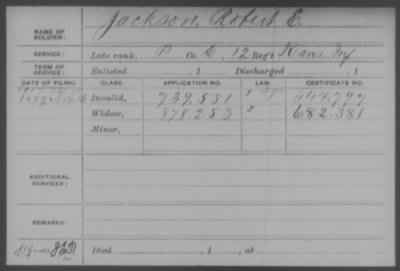 NAME OF SOLDIER: Jackson, Robert E.
SERVICE: Late rank, P Co. C, 12 Reg't Kans. Inf
TERM OF SERVICE: Enlisted , 1 Discharged , 1
DATE OF FILING. CLASS. APPLICATION NO. LAW. CERTIFICATE NO.
Invalid, 739.551 644.797
Widow, 878.253 682.381
Minor,
ADDITIONAL SERVICES:
REMARKS:
Died , 1 , at